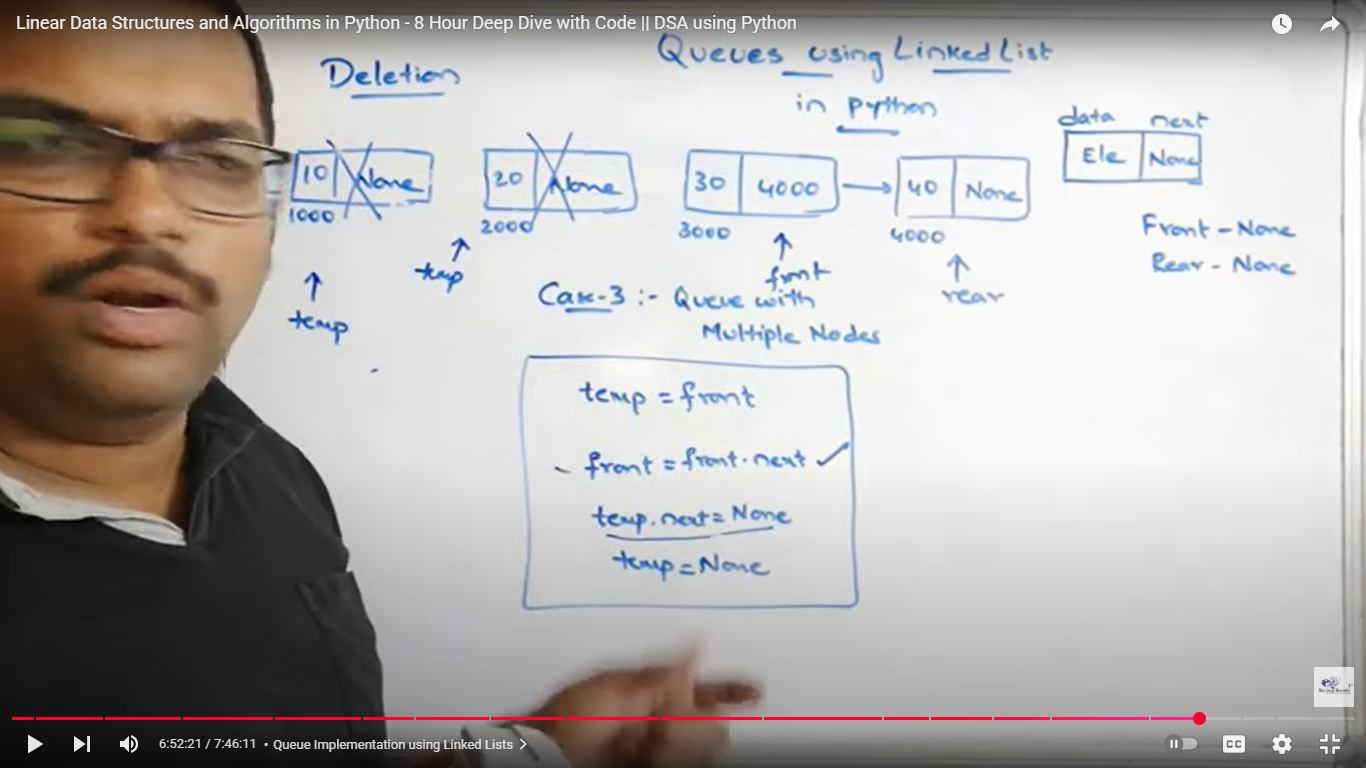 Linear Data Structures and Algorithms in Python - 8 Hour Deep Dive with Code || DSA using Python
Deletion
Queues using Linked List
in python
data next
Ele None
10 None
20 None
30 4000
40 None
1000
2000
3000
4000
Front - None
Rear - None
temp
temp
front
rear
Case-3 :- Queue with
Multiple Nodes
temp = front
- front = front.next ✓
temp.next = None
temp = None
6:52:21 / 7:46:11 • Queue Implementation using Linked Lists >
CC